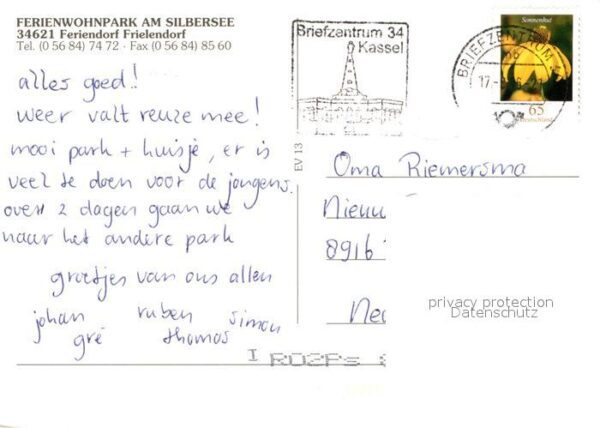 FERIENWOHNPARK AM SILBERSEE
34621 Feriendorf Frielendorf
Tel. (0 56 84) 74 72 · Fax (0 56 84) 85 60
alles goed!
weer valt reuze mee!
mooi park + huisje, er is
veel te doen voor de jongens.
over 2 dagen gaan we
naar het andere park
groetjes van ons allen
johan ruben simon
gré thomas
Briefzentrum 34
Kassel
BRIEFZENTRUM
17.
Sonnenhut
65
Deutschland
EV 13
Oma Riemersma
8916
privacy protection
Datenschutz